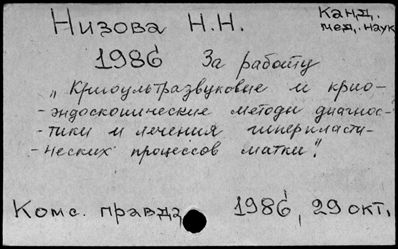 Низова Н.Н. Канд.
мед. наук
1986 За работу
„Криоультразвуковые и крио-
-эндоскопические методы диагнос-
-тики и лечения гиперпласти-
-ческих процессов матки".
Комс. правда 1986, 29 окт.